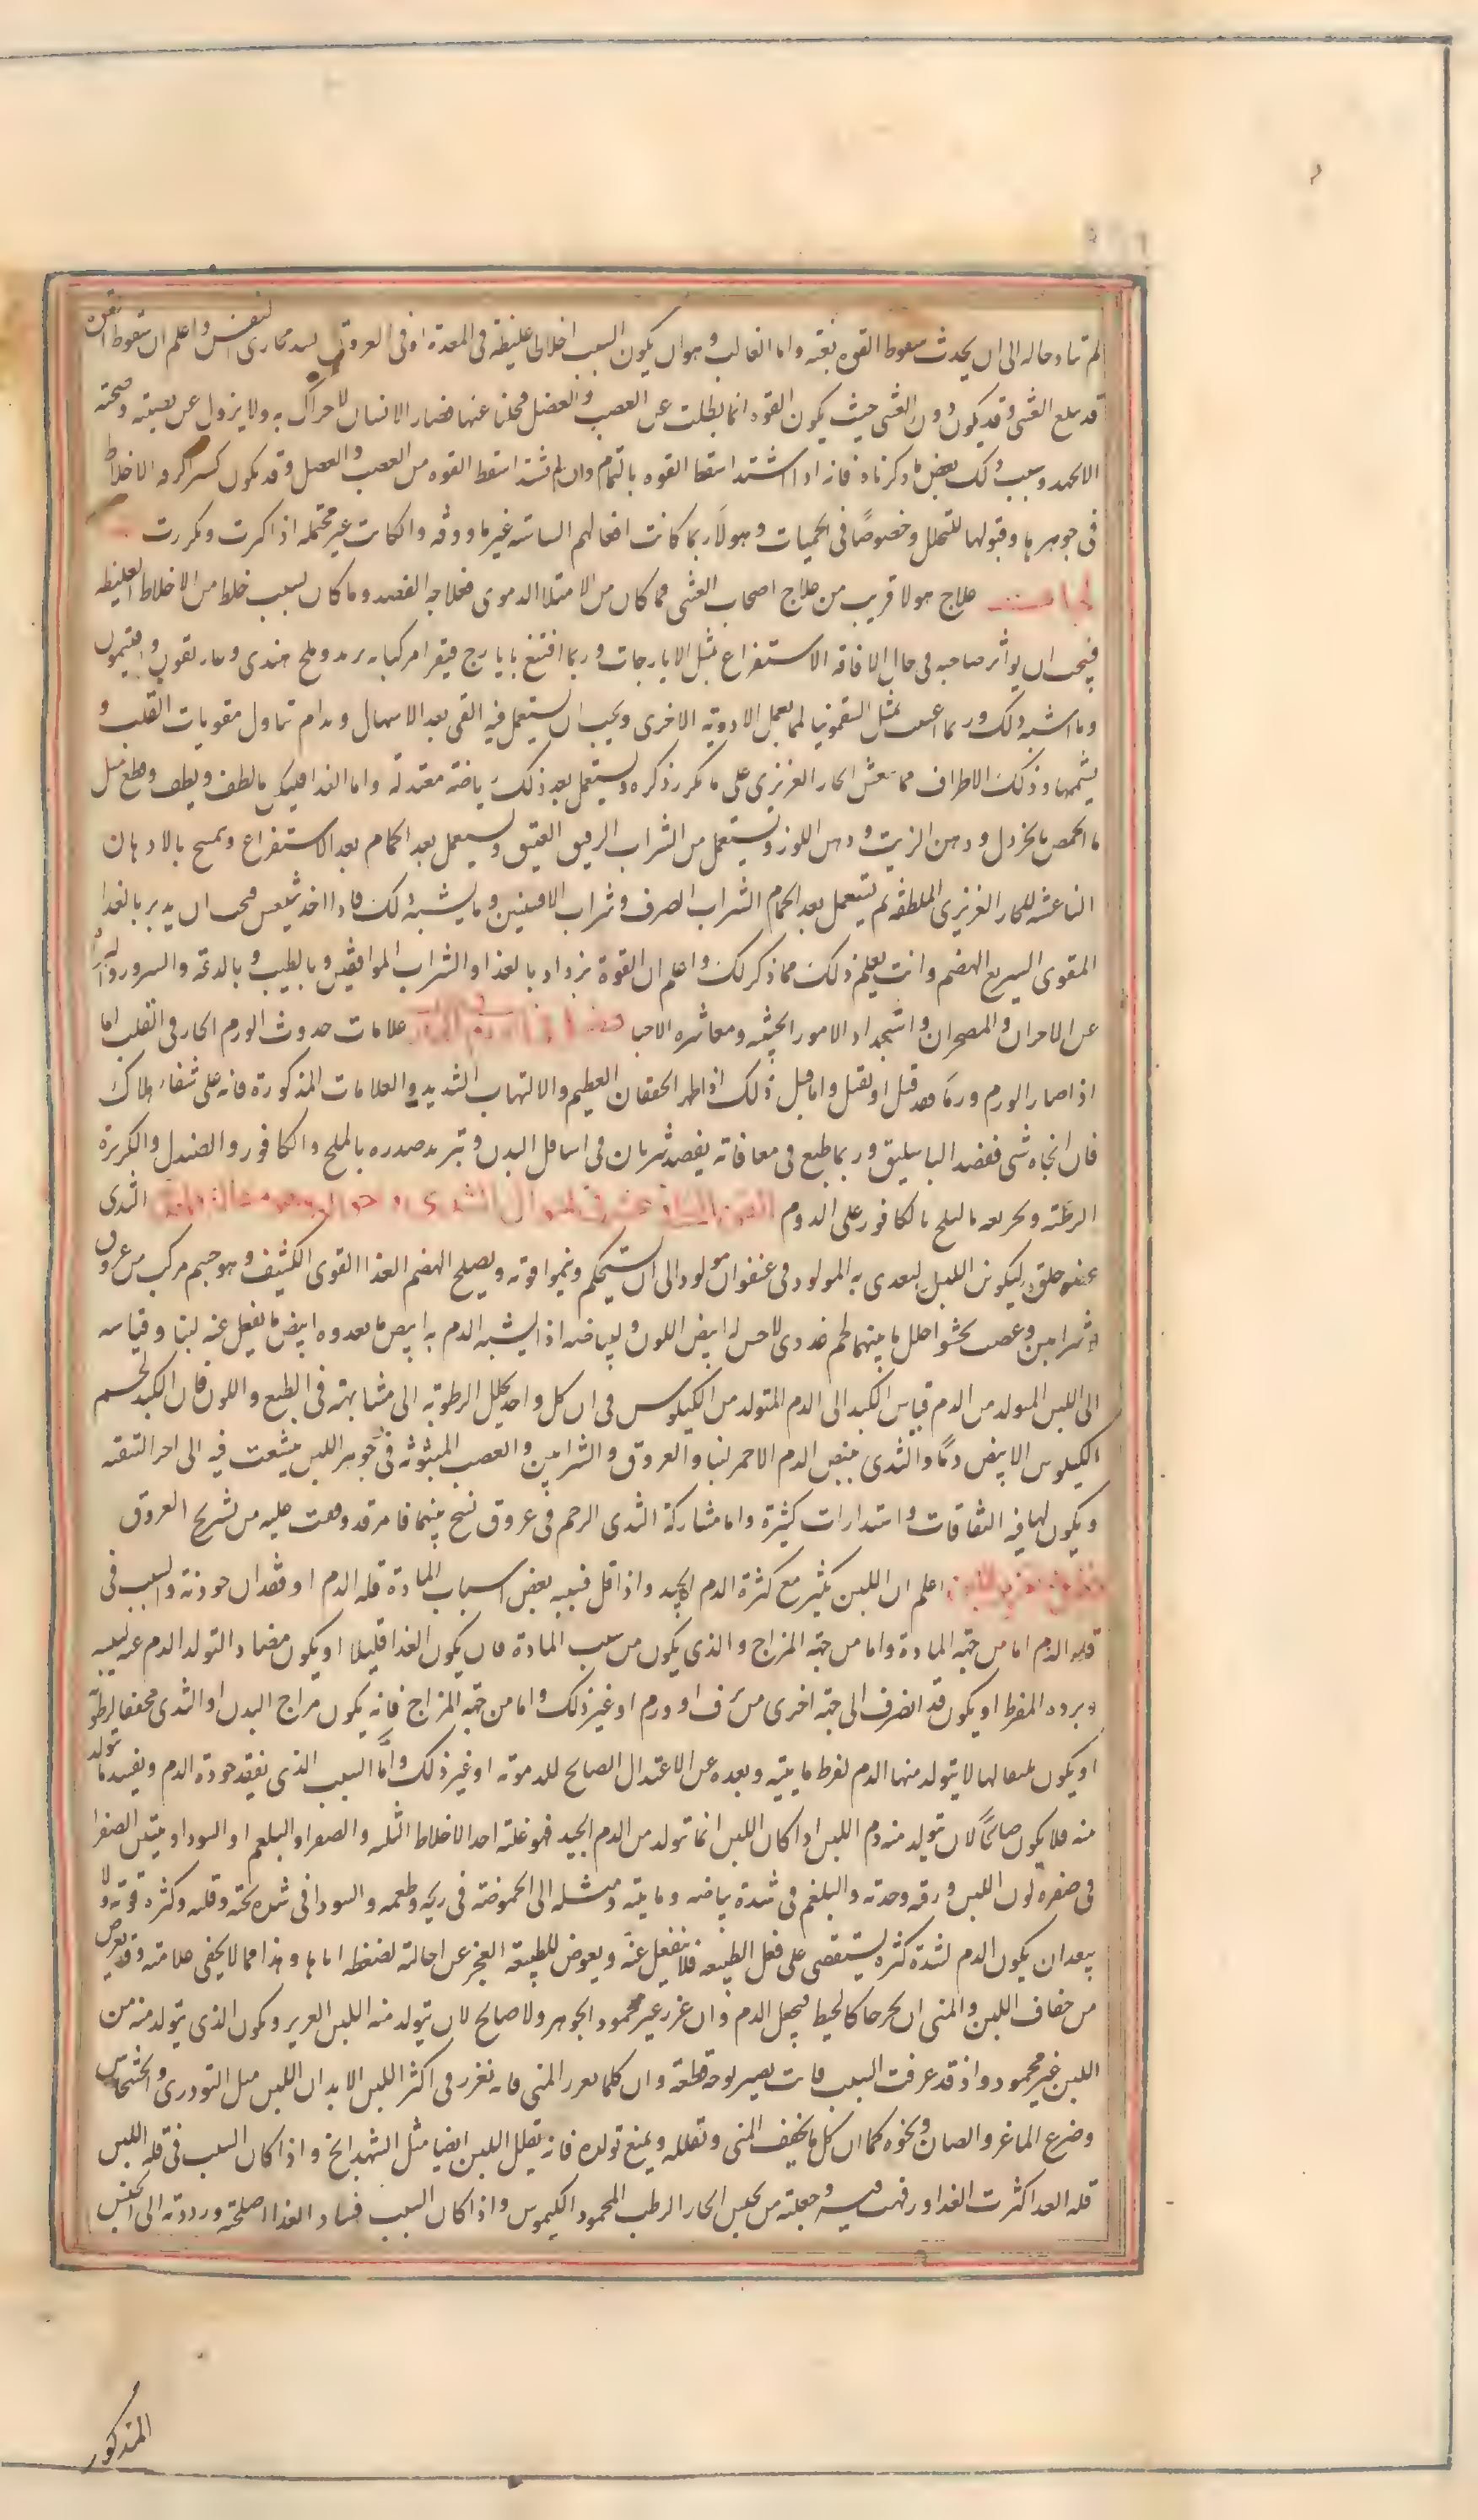 لم تتاد حاله الى ان يحدث سقوط القوه بغته واما الغالب وهو ان يكون السبب اخلاطا غليظة فى المعدة او فى العروق لسد مجارى النفس واعلم ان سقوط القوه
قد يبلغ الغشى وقد يكون دون الغشى حيث يكون القوه انما بطلت عن العصب والعضل فخلتا عنها فصار الانسان لا حراك به ولا يزول عن نصبته وضجعته
الا بجهد وسبب ذلك بعض ما ذكرناه فانه اذا اشتد اسقط القوه بالتمام وان لم يشتد اسقط القوه من العصب والعضل وقد يكون كسراكره الاخلاط
فى جوهرها وقبولها للتحلل وخصوصًا فى الحميات وهولآء ربما كانت افعالهم السياسيه غير ماووفه والكانت غير محتمله اذا كثرت وتكررت
علاج هولا قريب من علاج اصحاب الغشى فما كان من الامتلا الدموى فعلاجه الفصد وما كان بسبب خلط من الاخلاط الغليظه
فيجب ان يواتر صاحبه فى حال الافاقه الاستفراغ بمثل الايارجات وربما اقتنع بايارج فيقرا مركبا به تربد وملح هندى وغاريقون وافتيمون
وما اشبه ذلك وربما اعين بمثل السقمونيا لما يعمل الادويه الاخرى ويجب ان يستعمل فيه القى بعد الاسهال ويدام تناول مقويات القلب و
يشمها وذلك الاطراف مما ينعش الحار الغريزى على ما تكرر ذكره ويستعمل بعد ذلك رياضة معتدلة واما الغذا فليكن مالطف ويطف وقطع مثل
ما الحمص بالخردل ودهن الزيت ودهن اللوز ويستعمل من الشراب الرقيق العتيق ويستعمل بعد الحمام بعد الاستفراغ وتمسح بالادهان
الناعشه للحار الغريزى الملطفه ثم يستعمل بعد الحمام الشراب الصرف وشراب الافسنتين وما يشبه ذلك فاذا اخذ ينتعش فيجب ان يدبر بالغذا
المقوى السريع الهضم وانت تعلم ذلك مما ذكر لك واعلم ان القوة تزداد بالغذا والشراب الموافقين وبالطيب وبالدعه والسرور والبراءه
عن الاحزان والمضجرات واستجداد الامور الحبيبه ومعاشره الاحبا فصل فى الورم الحار فى القلب علامات حدوث الورم الحار فى القلب اما
اذا صار الورم ورمًا فقد قتل او يقتل واما قبل ذلك اذا ظهر الخفقان العظيم والالتهاب الشديد والعلامات المذكورة فانه على شفا هلاك
فان انجاه شى ففصد الباسليق وربما طمع فى معافاته بفصد شريان فى اسافل البدن وتبريد صدره بالملح والكافور والصندل والكزبرة
الرطبه وتجريعه ما الملح بالكافور على الدوام الفن الثانى عشر فى احوال الثدى وهو مقاله واحده الثدى
عضو خلق ليكون اللبن ليغدى به المولود فى عنفوان مولوده الى ان يستحكم وتنمو قوته ويصلح لهضم الغذا القوى الكثيف وهو جسم مركب من عروق
وشرايين وعصب يحشو خلل ما بينها لحم غددى لا حس له ابيض اللون ولبياضه اذا تشبه الدم به ابيض ما يغدوه ابيض ما ينفصل عنه لبنا وقياسه
الى اللبن المتولد من الدم قياس الكبد الى الدم المتولد من الكيلوس فى ان كل واحد يحيل الرطوبه الى مشابهته فى الطبع واللون فان الكبد يحمر
الكيلوس الابيض دمًا والثدى يبيض الدم الاحمر لبنا والعروق والشرايين والعصب المبثوثه فى جوهر اللبن يتشعب فيه الى اخر التنقيه
ويكون لها فيه التفافات واستدارات كثيرة واما مشاركة الثدى الرحم فى عروق تسنح بينهما فامر قد وقفت عليه من تشريح العروق
فصل فى تغزير اللبن اعلم ان اللبن يكثر مع كثرة الدم الجيد واذا قل فسببه بعض اسباب المادة قله الدم او فقدان جودته والسبب فى
قله الدم اما من جهة المادة واما من جهة المزاج والذى يكون من سبب المادة فان يكون الغذا قليلا او يكون مضادا لتولد الدم عنه ليبسه
وبرده المفرط او يكون قد انصرف الى جهة اخرى من نزف او ورم او غير ذلك واما من جهة المزاج فانه يكون مزاج البدن او الثدى مجففا لرطوبته
او يكون مبردا لها لا يتولد منها الدم لفرط مايتيه وبعده عن الاعتدال الصالح للدمويه او غير ذلك واما السبب الذى يفقد جودة الدم ويفسد ما يتولد
منه فلا يكون صالحًا لان يتولد منه دم اللبن اذا كان اللبن انما تولد من الدم الجيد فهو غلبة احد الاخلاط الثلثه والصفرا والبلغم او السودا ويتبين الصفرا
فى صفرة لون اللبن ورقه وحدته والبلغم فى شدة بياضه ومايته وميله الى الحموضه فى ريحه وطعمه والسودا فى شده ثخنه وقلته وكثره قوته ولا
يبعد ان يكون الدم لشدة كثرته يستعصى على فعل الطبيعه فلا ينفعل عنه ويعرض للطبيعة العجز عن احالته لضغطه اياها وهذا مما لا يخفى علامته وقد يعرض
من جفاف اللبن والمنى ان يخرجا كالخيط فيجعل الدم وان غزر غير محمود الجوهر ولا صالح لان يتولد منه اللبن الغزير ويكون الذى يتولد منه من
اللبن غير محمود واذ قد عرفت السبب فانت بصير بوجه قطعه وان كلما يغزر المنى فانه يغزر فى اكثر اللبن الابدان اللبن مثل التودرى والخشخاش
وضرع الماعز والضان ونحوه كما ان كل ما يخفف المنى ويقلله ويمنع تولده فانه يقلل اللبن ايضا مثل الشهدانج واذا كان السبب فى قله اللبن
قله الغذا كثرت الغذا ورفهت فيه وجعلته من جنس الحار الرطب المحمود الكيموس واذا كان السبب فساد الغذا اصلحته ورددته الى الجنس
المذكور